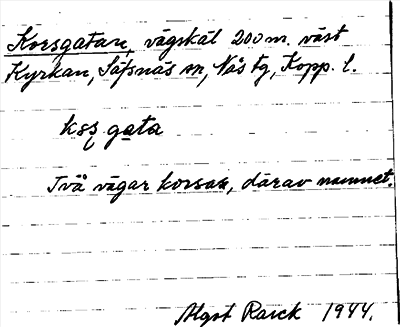 Korsgatan, vägskäl 200 m. väst
Kyrkan, Säfsnäs sn, Nås tg, Kopp. l.
gata
Två vägar korsas, därav namnet.
Algot Rarck 1944.